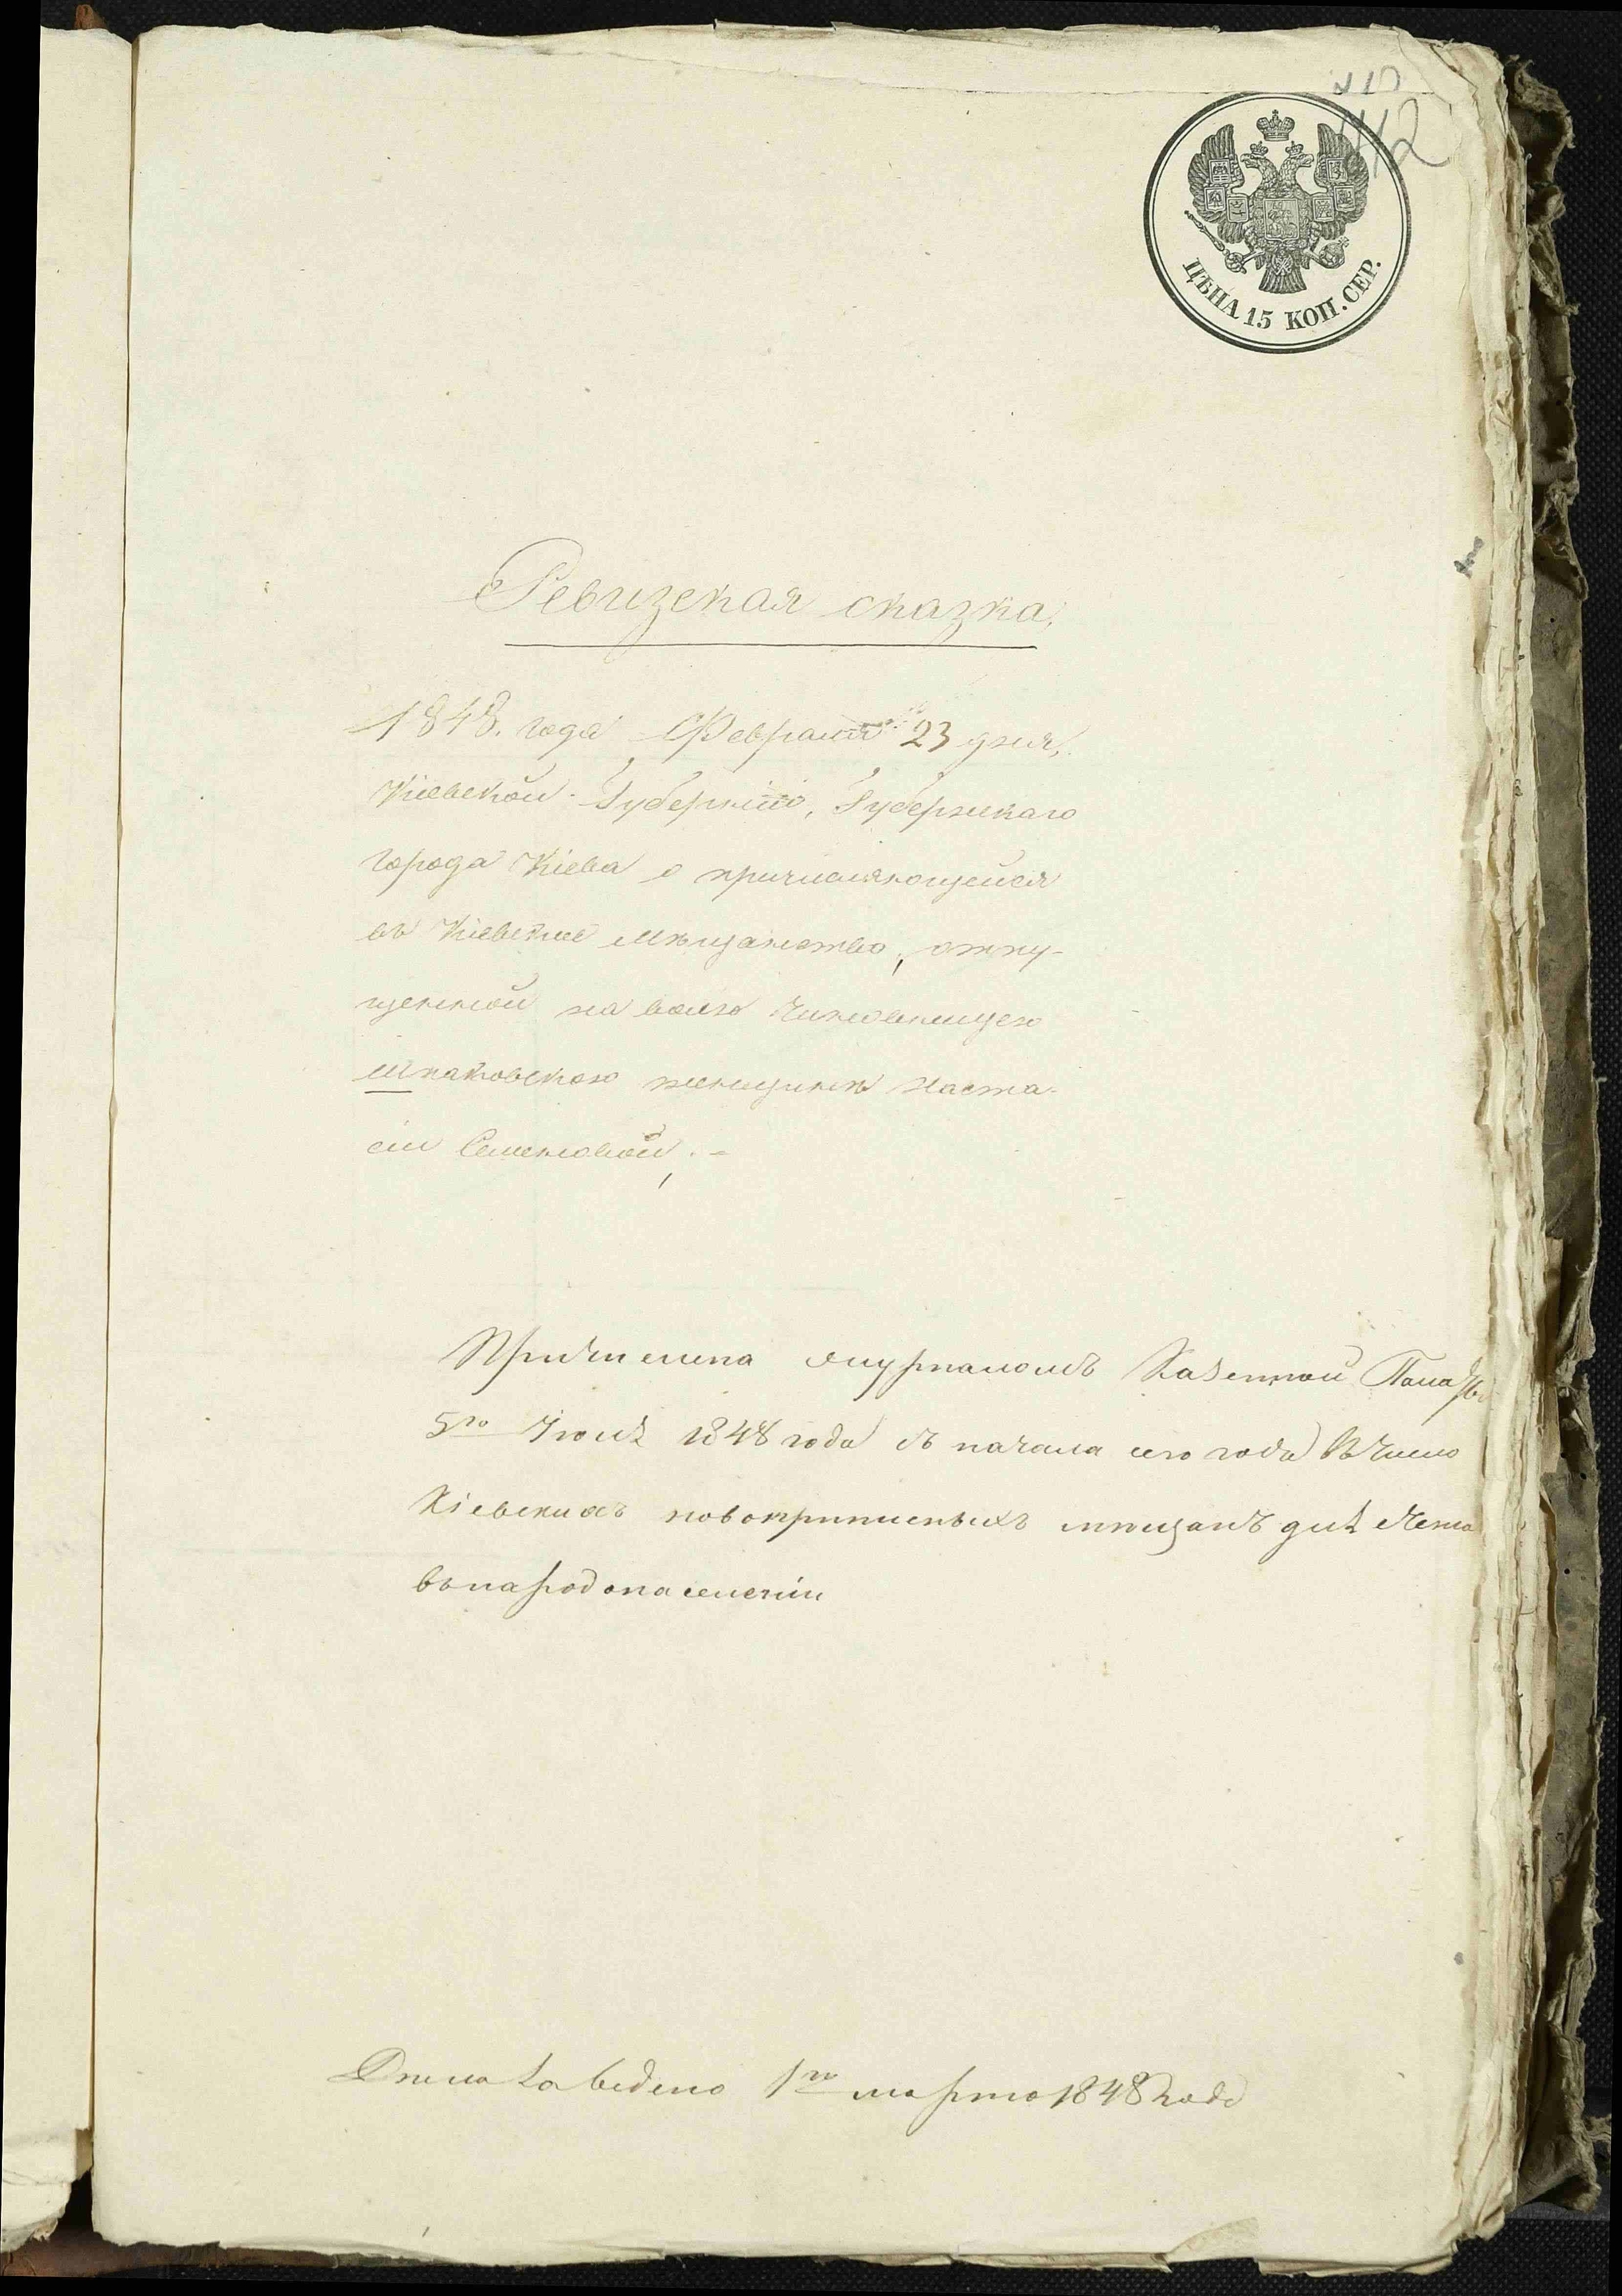 412
ЦѢНА 15 КОП. СЕР.
Ревизская сказка,
1848. года Февраля 23 дня,
Кіевской Губерніи, Губернскаго
города Кіева о причисляющейся
въ Кіевское мѣщанство, отпу-
щенной на волю Чиновницею
Шпаковскою женщинѣ Наста-
сіи Семеновой. -
Причислена журналомъ Казенной Палаты
5го Іюля 1848 года съ начала сего года въ число
Кіевскихъ новоприписныхъ мѣщанъ для счета
въ народонаселеніи
Дѣло заведено 1го марта 1848 года